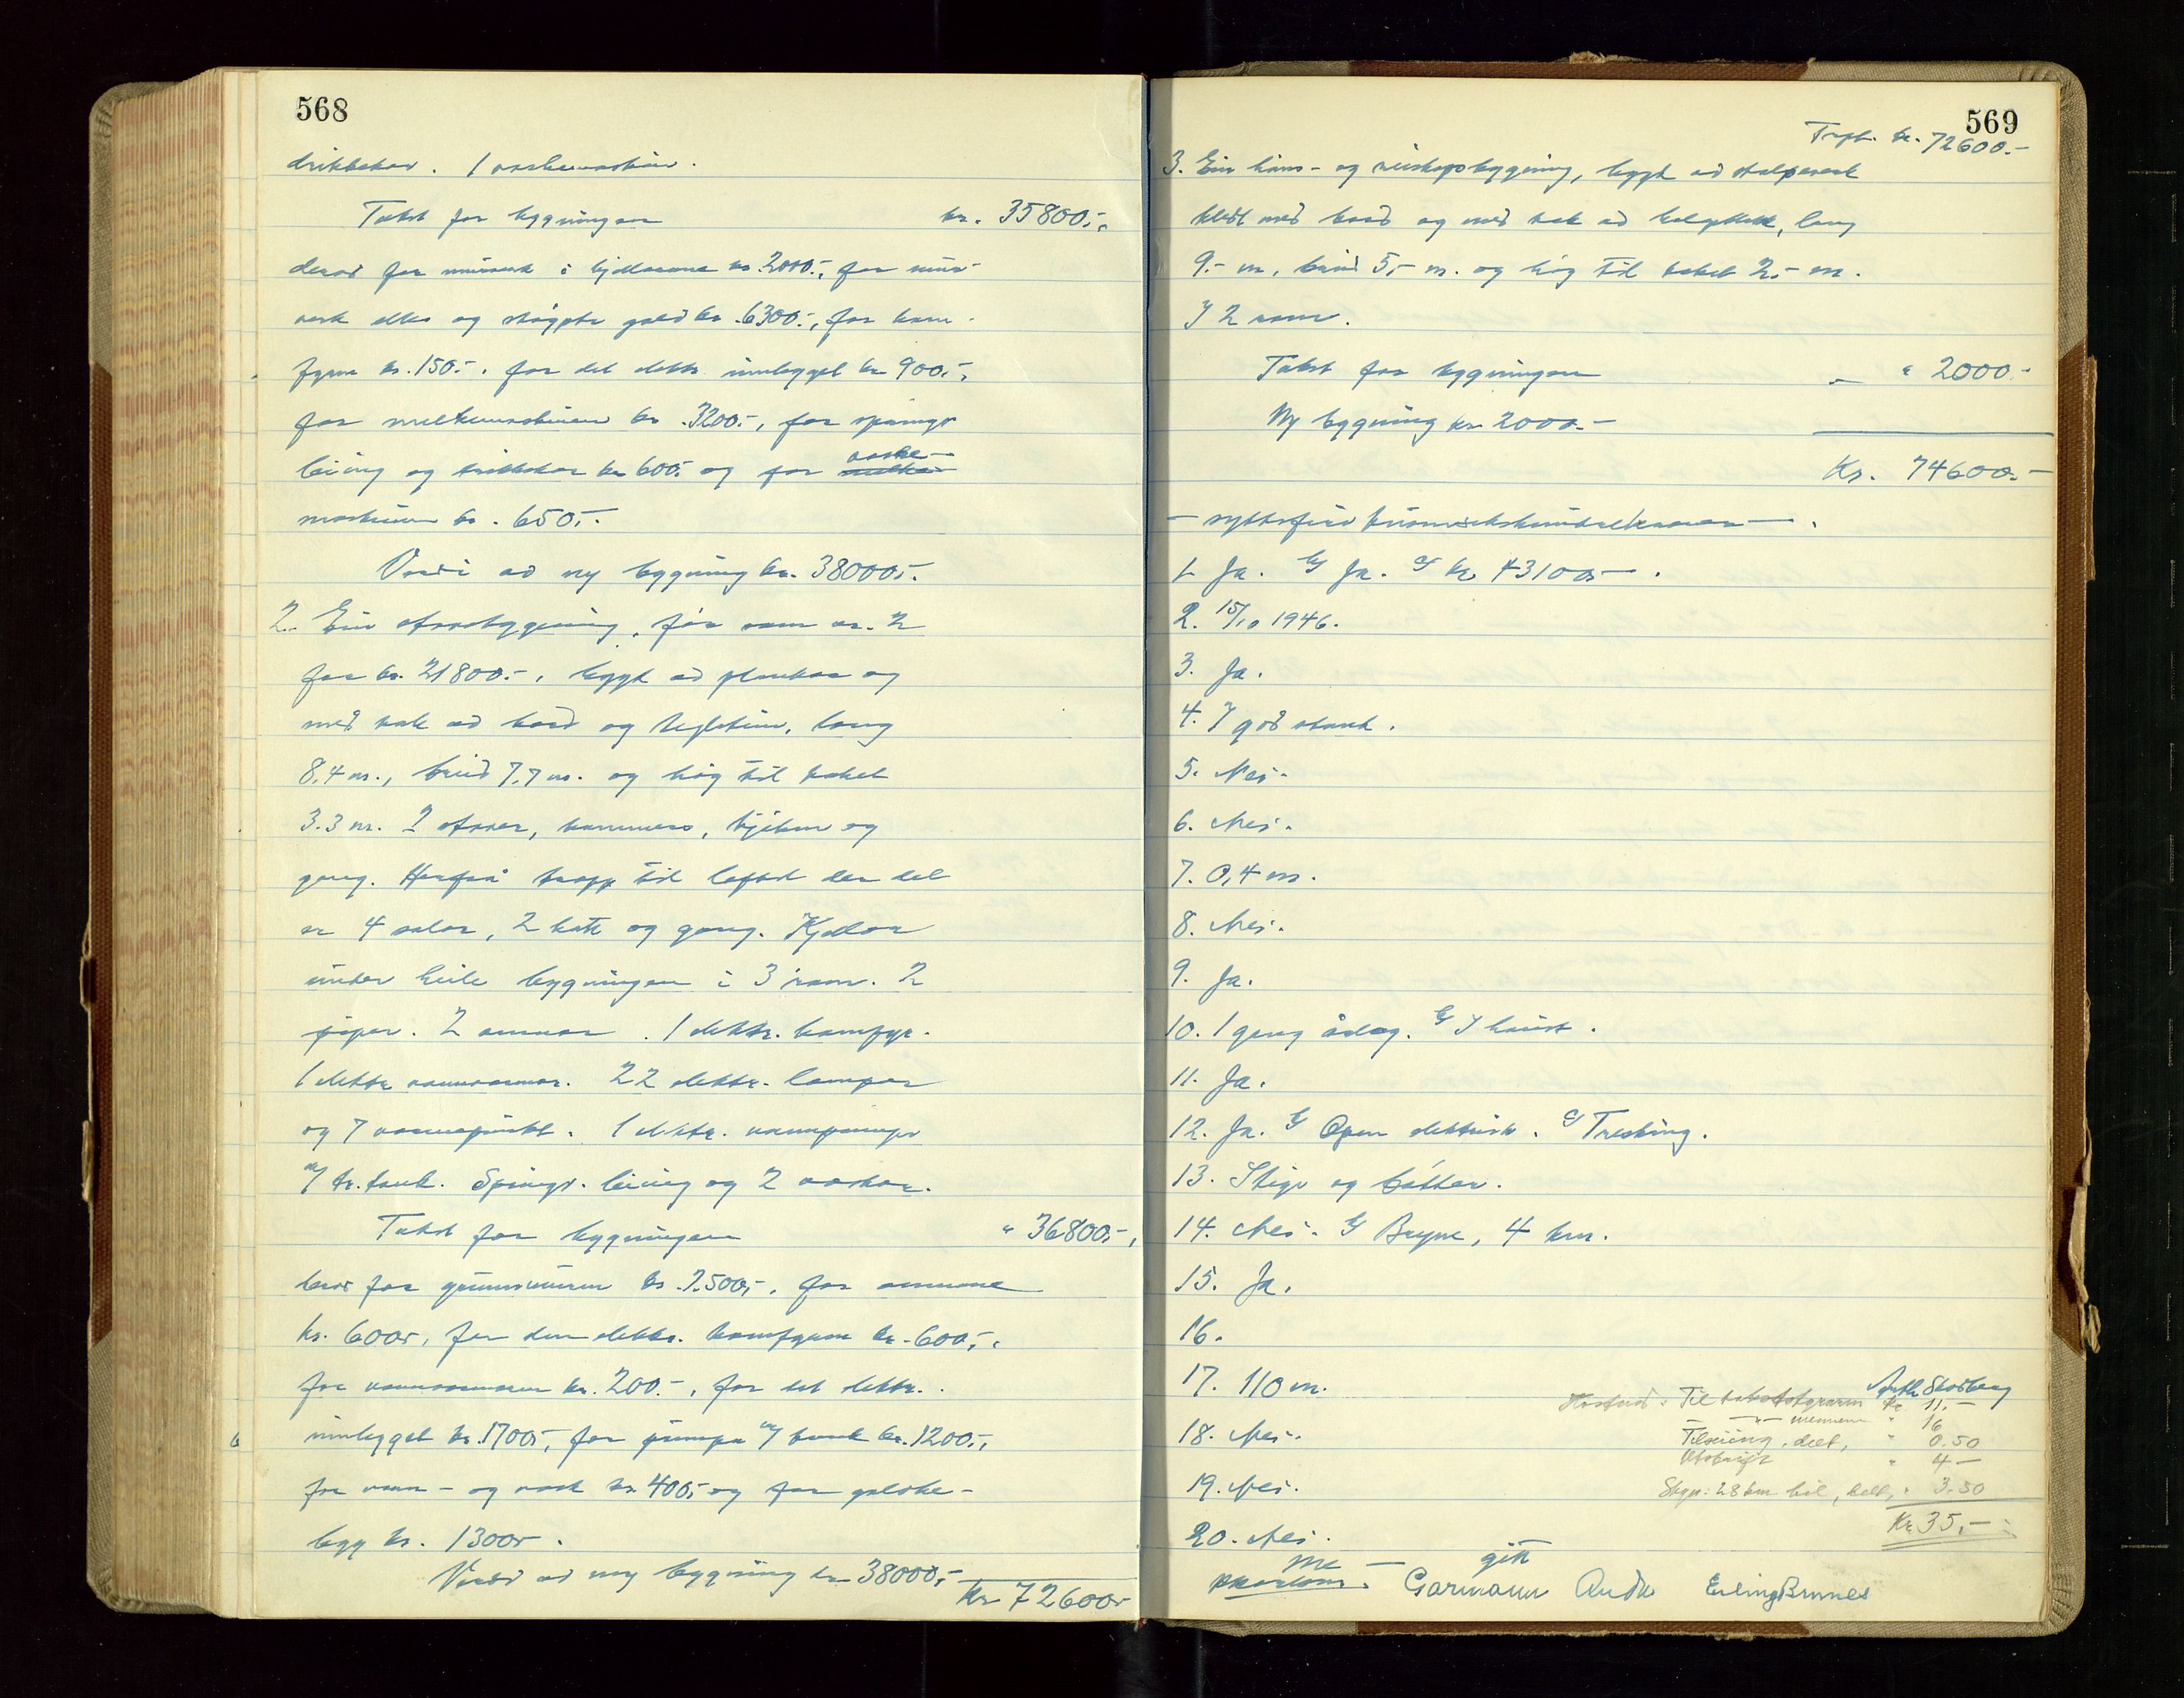 568
drikkekar. 1 vaskemaskin.
Takst for bygningen kr. 35800,-,
derav for murverk i kjellarane kr. 2000.-, for mur-
verk elles og støypte golv kr. 6300.-, for kom-
fyren kr. 150.-, for det elektr. innlegget kr 900.-,
for melkemaskinen kr. 3200.-, for springv.
leiing og drikkekar kr 600.- og for vaske-
maskinen kr. 650,-.
Verdi av ny bygning kr. 38000,-.
2. Ein stovebygning, før som nr. 2
for kr. 21800.-, bygt av plankar og
med tak av bord og teglstein, lang
8,4 m., breid 7,7 m. og høg til taket
3.3 m. 2 stover, kammers, kjøken og
gang. Herfrå trapp til loftet der det
er 4 salar, 2 kott og gang. Kjellar
under heile bygningen i 3 rom. 2
piper. 2 omnar. 1 elektr. komfyr.
1 elektr. vannvarmar. 22 elektr. lamper
og 7 varmepunkt. 1 elektr. vannpumpe
m/ tr.tank. Springv. leiing og 2 vaskar.
Takst for bygningen " 36800,-,
derav for grunnmuren kr. 7500,-, for omnane
kr. 600,-, for den elektr. komfyren kr. 600,-,
for vannvarmaren kr. 200.-, for det elektr.
innlegget kr. 1700,-, for pumpa m/ tank kr. 1200.-,
for vann- og vask kr. 400,- og for golvbe-
legg kr. 1300,-.
Verdi av ny bygning kr 38000,-
Kr 72600,-
569
Trpt. kr. 72600.-
3. Ein hons- og reiskapsbygning, bygt av stolpeverk
kledt med bord og med tak av bølgeblekk, lang
9.- m, breid 5,- m. og høg til taket 2,- m.
I 2 rom.
Takst for bygningen - " 2000.-
Ny bygning kr. 2000.-
Kr. 74600.-
- syttifire tusen sekshundre kroner - .
1. Ja. b) Ja. c) kr. 43100,- .
2. 15/10 1946.
3. Ja.
4. I god stand.
5. Nei.
6. Nei.
7. 0,4 m.
8. Nei.
9. Ja.
10. 1 gang årleg. b) I haust.
11. Ja.
12. Ja. b) Open elektrisk. c) Tresking.
13. Stige og bøtter.
14. Nei. b) Bryne, 4 km.
15. Ja.
16.
17. 110 m.
18. Nei.
19. Nei.
20. Nei.
Kostnad: Til takstskriveren kr. 11.-
- " - mennene " 16
Tilseiing, delt, " 0.50
Utskrift " 4 -
Skyss: 28 km bil, delt, " 3.50
Kr 35,-
Garmann Auda Erling Brunes